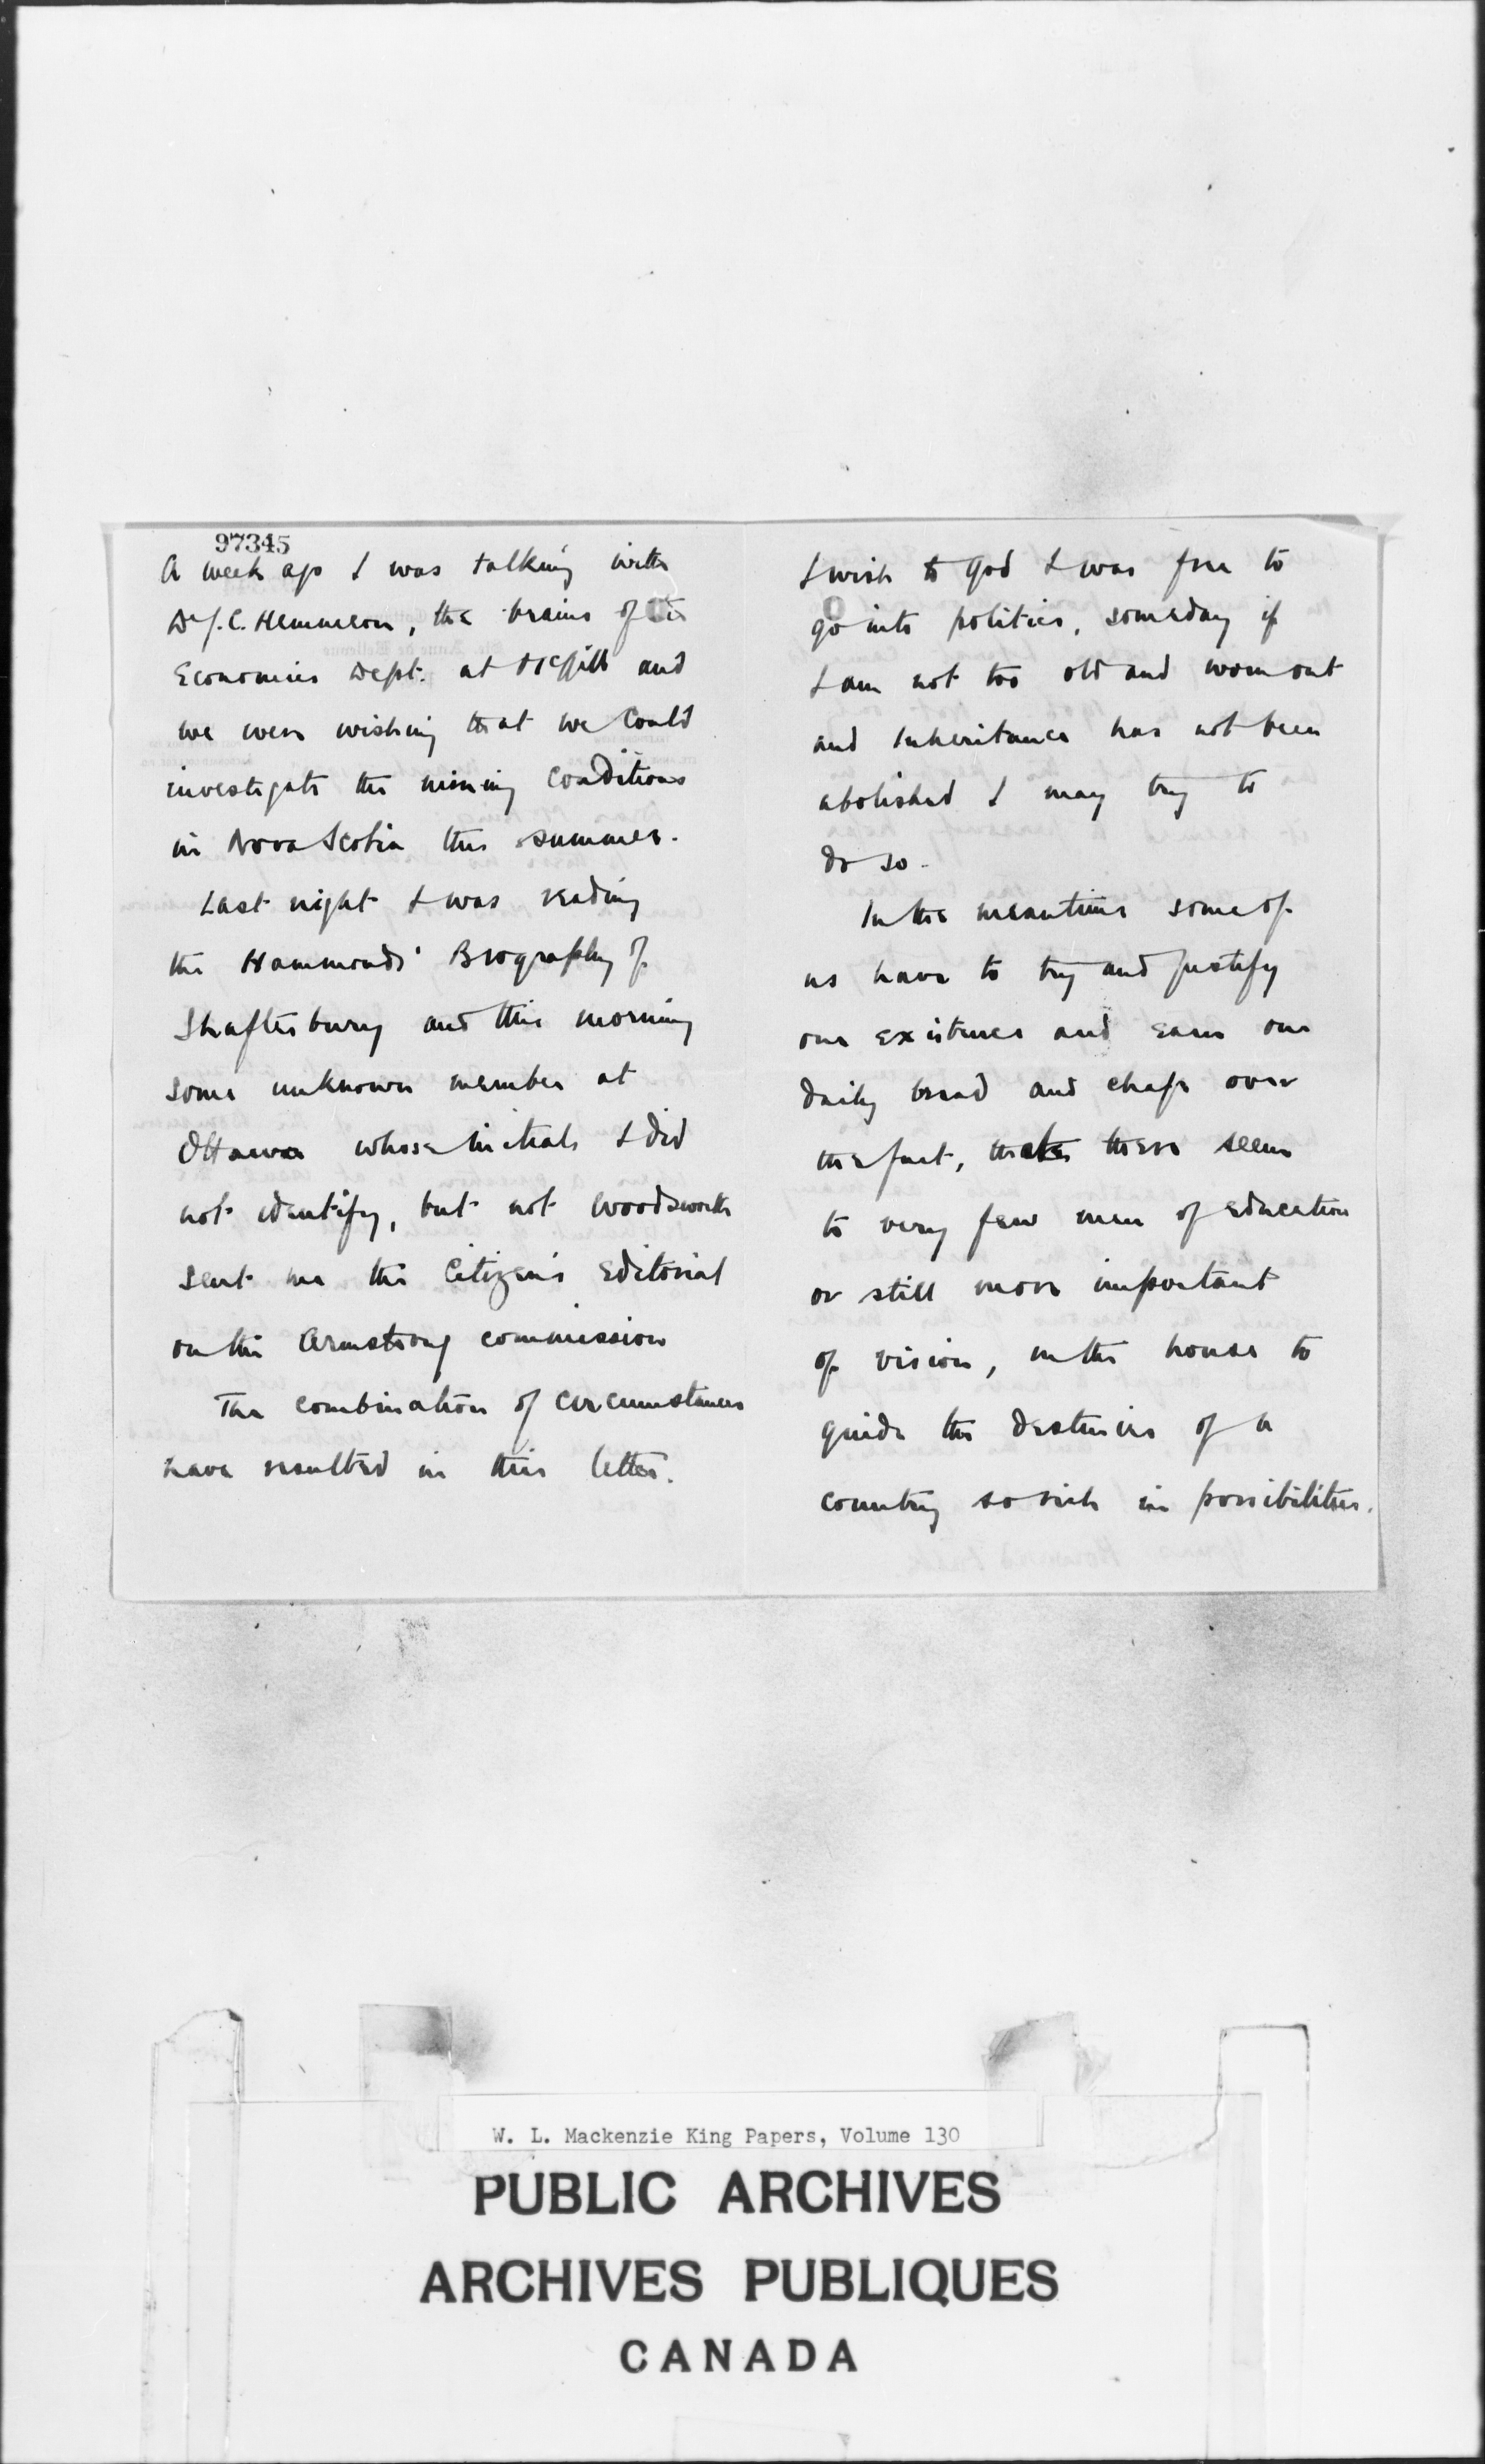 97345
A week ago I was talking with
Dr J.C. Hemmeon, the brains of the
Economics Dept. at McGill and
we were wishing that we could
investigate the mining conditions
in Nova Scotia this summer.
Last night I was reading
the Hammonds' Biography of
Shaftesbury and this morning
some unknown member at
Ottawa whose initials I did
not identify, but not Woodsworth
sent me the Citizen's Editorial
on the Armstrong commission
The combination of circumstances
have resulted in this letter.
I wish to God I was free to
go into politics, someday if
I am not too old and worn out
and Inheritance has not been
abolished I may try to
do so.
In the meantime some of
us have to try and justify
our existence and earn our
daily bread and chafe over
the fact, that there seem
to very few men of education
or still more important
of vision, in the house to
guide the destinies of a
country so rich in possibilities.
W. L. Mackenzie King Papers, Volume 130
PUBLIC ARCHIVES
ARCHIVES PUBLIQUES
CANADA